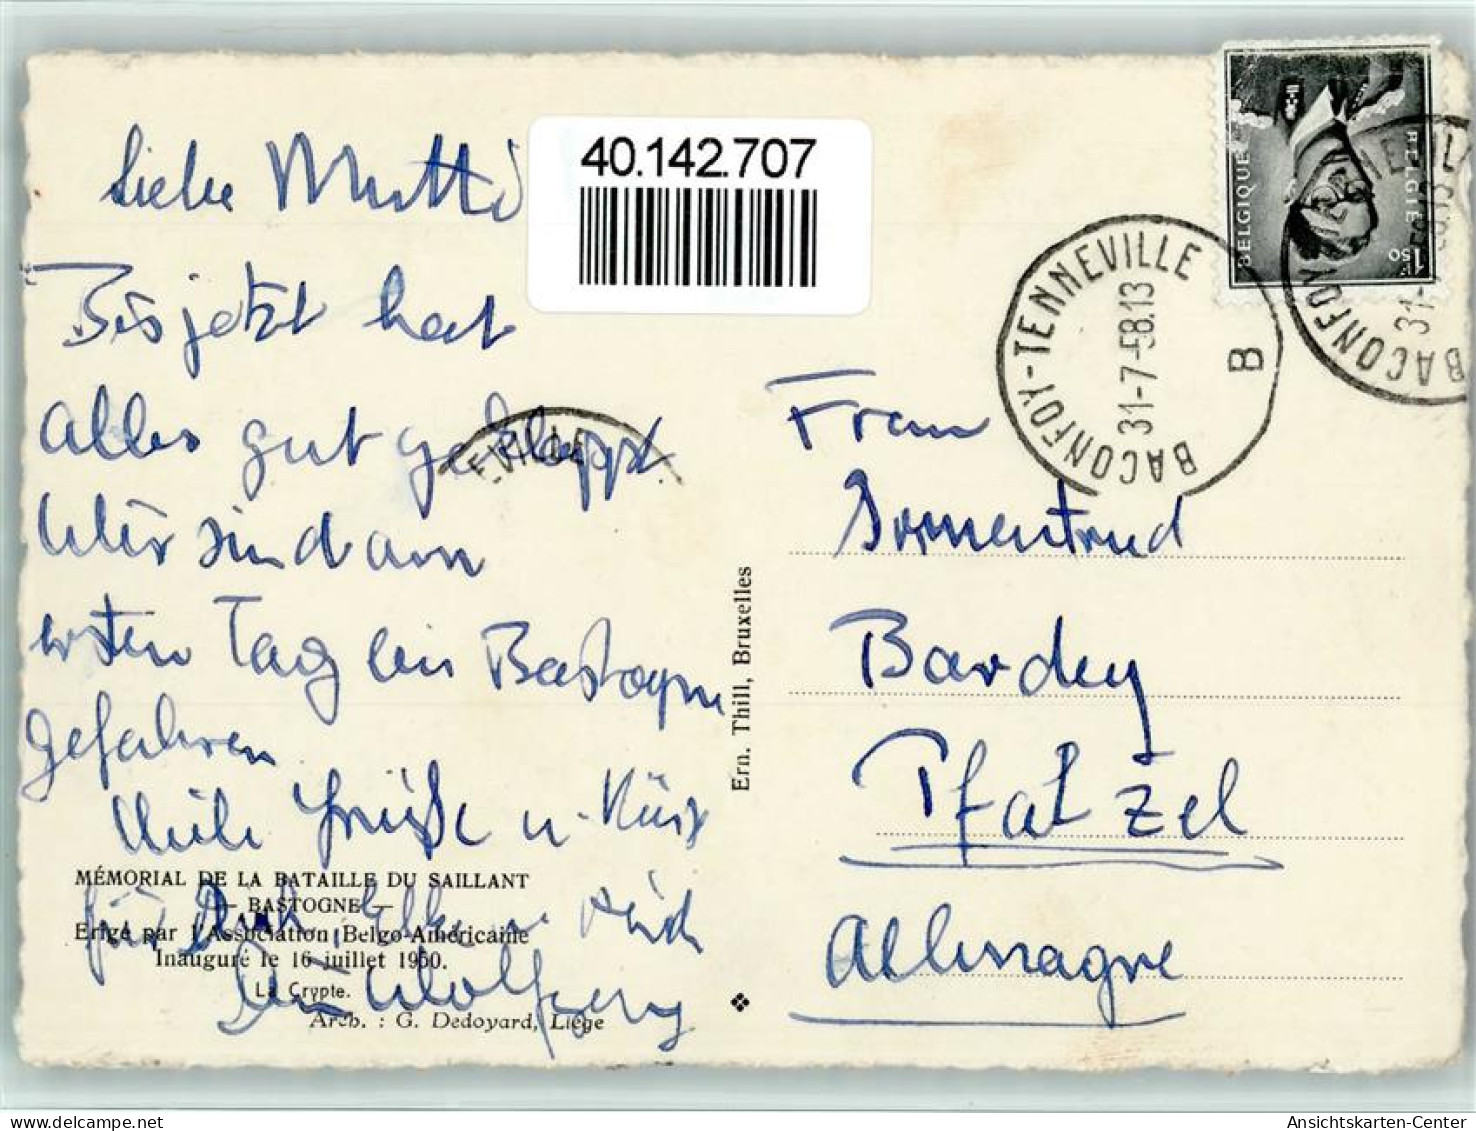 Liebe Mutti
Bis jetzt hat
alles gut geklappt
Wir sind am
ersten Tag bis Bastogne
gefahren
Viele Grüße u. Küsse
für Dich, Elke u.
Dein Wolfgang
MÉMORIAL DE LA BATAILLE DU SAILLANT
— BASTOGNE —
Erigé par l'Association Belgo-Américaine
Inauguré le 16 juillet 1950.
La Crypte.
Arch. : G. Dedoyard, Liége
40.142.707
EVILLE
Ern. Thill, Bruxelles
BELGIQUE
BELGIE
1F50
BACONFOY-TENNEVILLE
31-7-58.13
B
BACONFOY
31-
Frau
Irmentrud
Bardey
Pfalzel
Allemagne
Ansichtskarten-Center